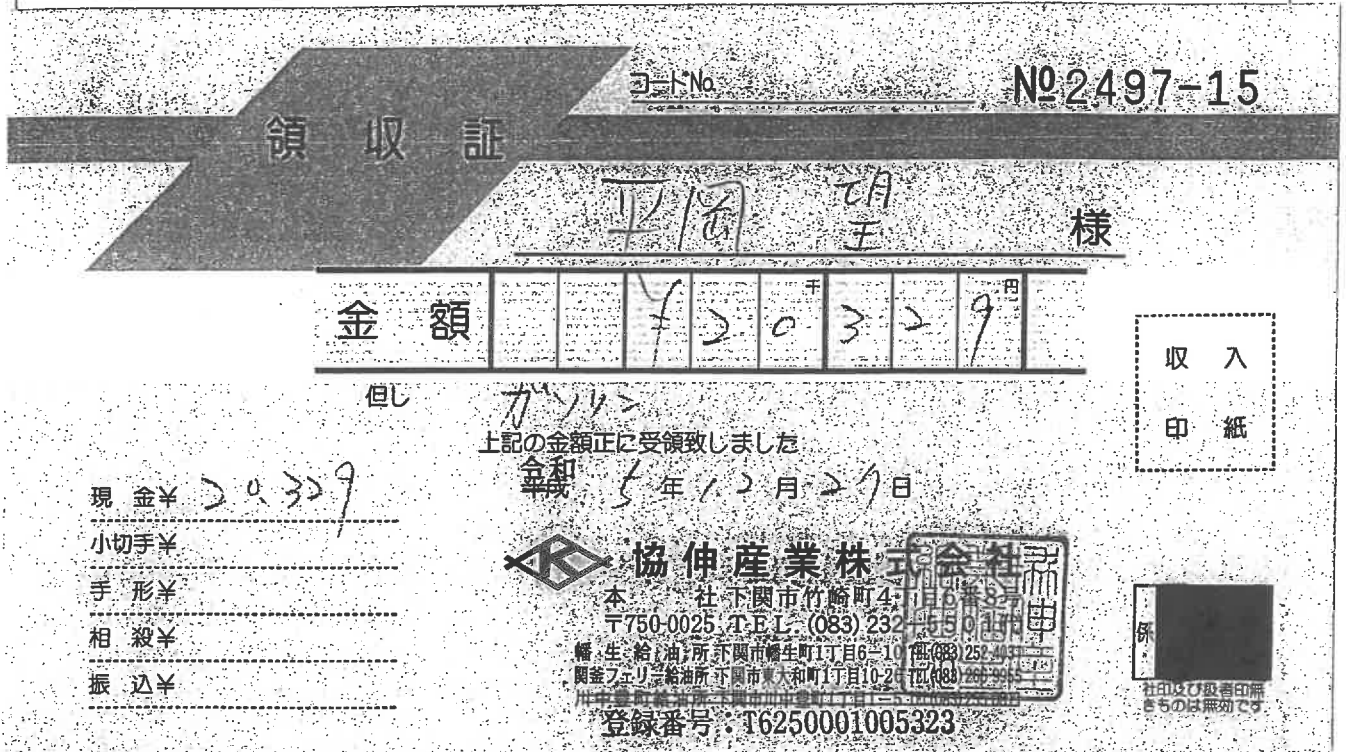 コードNo.
№2497-15
領収証
平岡 望 様
金額 ¥20329 千 円
但し ガソリン
上記の金額正に受領致しました
令和
平成 5年12月27日
現金¥ 20,329
小切手¥
手形¥
相殺¥
振込¥
収入
印紙
協伸産業株式会社
本社 下関市竹崎町4丁目6番8号
〒750-0025 TEL (083) 232-5501
幡生給油所 下関市幡生町1丁目6-10 TEL(083)252-4033
関釜フェリー給油所 下関市東大和町1丁目10-2 TEL(083)266-9955
登録番号:T6250001005323
係
社印及び扱者印無
きものは無効です